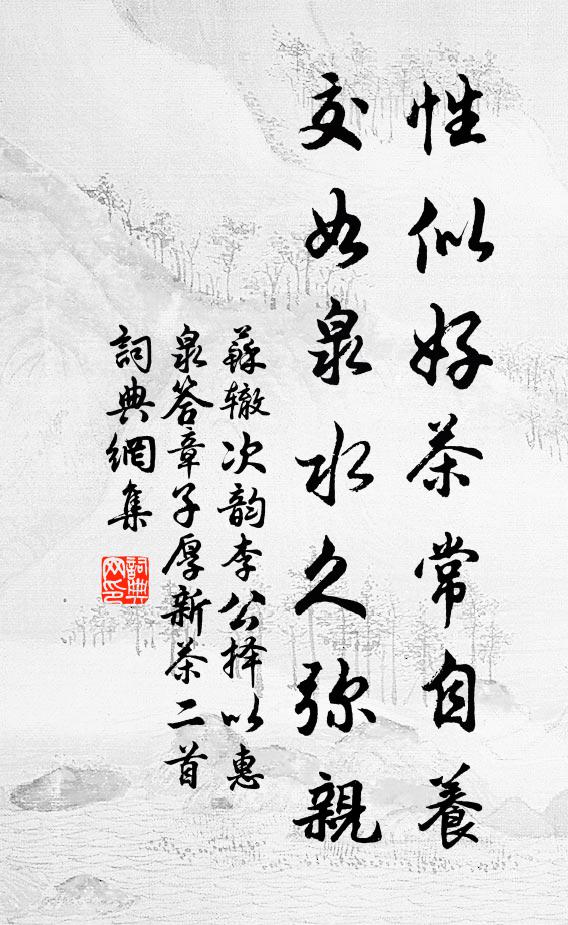 性似好茶常自養
交如泉水久弥親
蘇辙次韵李公择以惠
泉答章子厚新茶二首
詞典網集
詞典网印